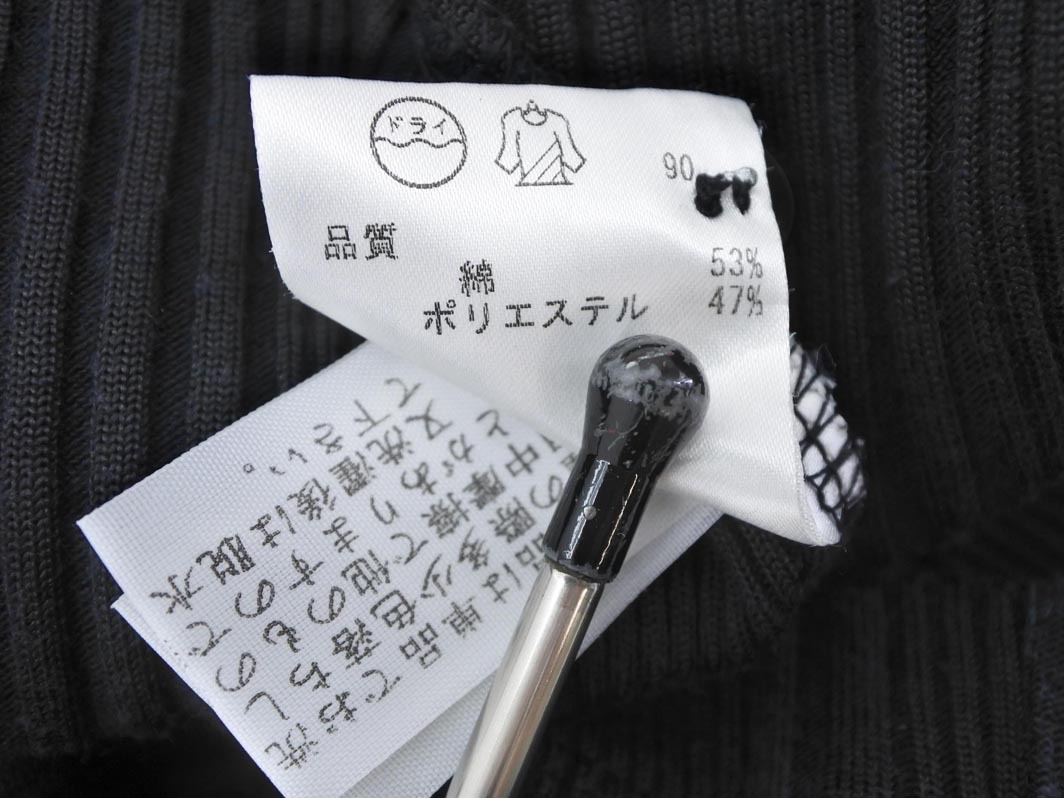 ドライ
90
品質
綿 53%
ポリエステル 47%
品は単品でお洗
の際多少色落ちし
中摩擦で他のもので
とがありますので
又洗濯後は脱水
て下さい。